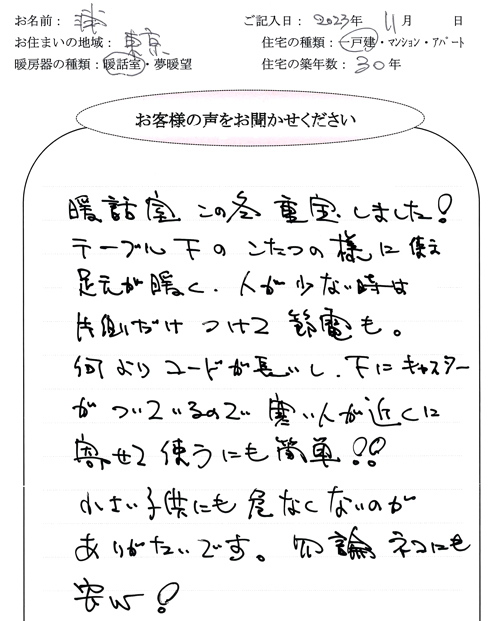 お名前：
ご記入日：2023年 11月 日
お住まいの地域：東京
住宅の種類：一戸建・マンション・アパート
暖房器の種類：暖話室・夢暖望
住宅の築年数：30年
お客様の声をお聞かせください
暖話室 この冬 重宝しました！
テーブル下の こたつの様に 使え
足元が暖く、人が少ない時は
片側だけ つけて 節電も。
何より コードが長いし、下にキャスター
が ついているので 寒い人が近くに
寄せて 使うにも 簡単！！
小さい子供にも 危なくないのが
ありがたいです。勿論 ネコにも
安心！